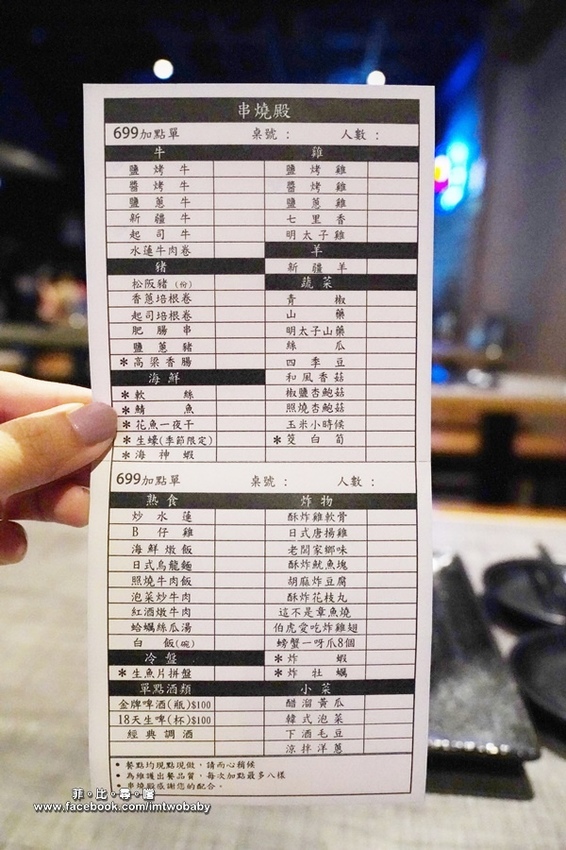 串燒殿
699加點單 桌號： 人數：
牛 雞
鹽烤牛 鹽烤雞
醬烤牛 醬烤雞
鹽蔥牛 鹽蔥雞
新疆牛 七里香
起司牛 明太子雞
水蓮牛肉卷 羊
豬 新疆羊
松阪豬(份) 蔬菜
香蔥培根卷 青椒
起司培根卷 山藥
肥腸串 明太子山藥
鹽蔥豬 絲瓜
*高梁香腸 四季豆
海鮮 和風香菇
*軟絲 椒鹽杏鮑菇
*鯖魚 照燒杏鮑菇
*花魚一夜干 玉米小時候
*生蠔(季節限定) *筊白筍
*海神蝦
699加點單 桌號： 人數：
熟食 炸物
炒水蓮 酥炸雞軟骨
B仔雞 日式唐揚雞
海鮮燉飯 老闆家鄉味
日式烏龍麵 酥炸魷魚塊
照燒牛肉飯 胡麻炸豆腐
泡菜炒牛肉 酥炸花枝丸
紅酒燉牛肉 這不是章魚燒
蛤蠣絲瓜湯 伯虎愛吃炸雞翅
白飯(碗) 螃蟹一呀爪8個
冷盤 *炸蝦
*生魚片拼盤 *炸牡蠣
單點酒類 小菜
金牌啤酒(瓶)$100 醋溜黃瓜
18天生啤(杯)$100 韓式泡菜
經典調酒 下酒毛豆
涼拌洋蔥
• 餐點均現點現做，請而心稍候
• 為維護出餐品質，每次加點最多八樣
• 串燒殿感謝您的配合。
菲。比。尋。嚐
www.facebook.com/imtwobaby